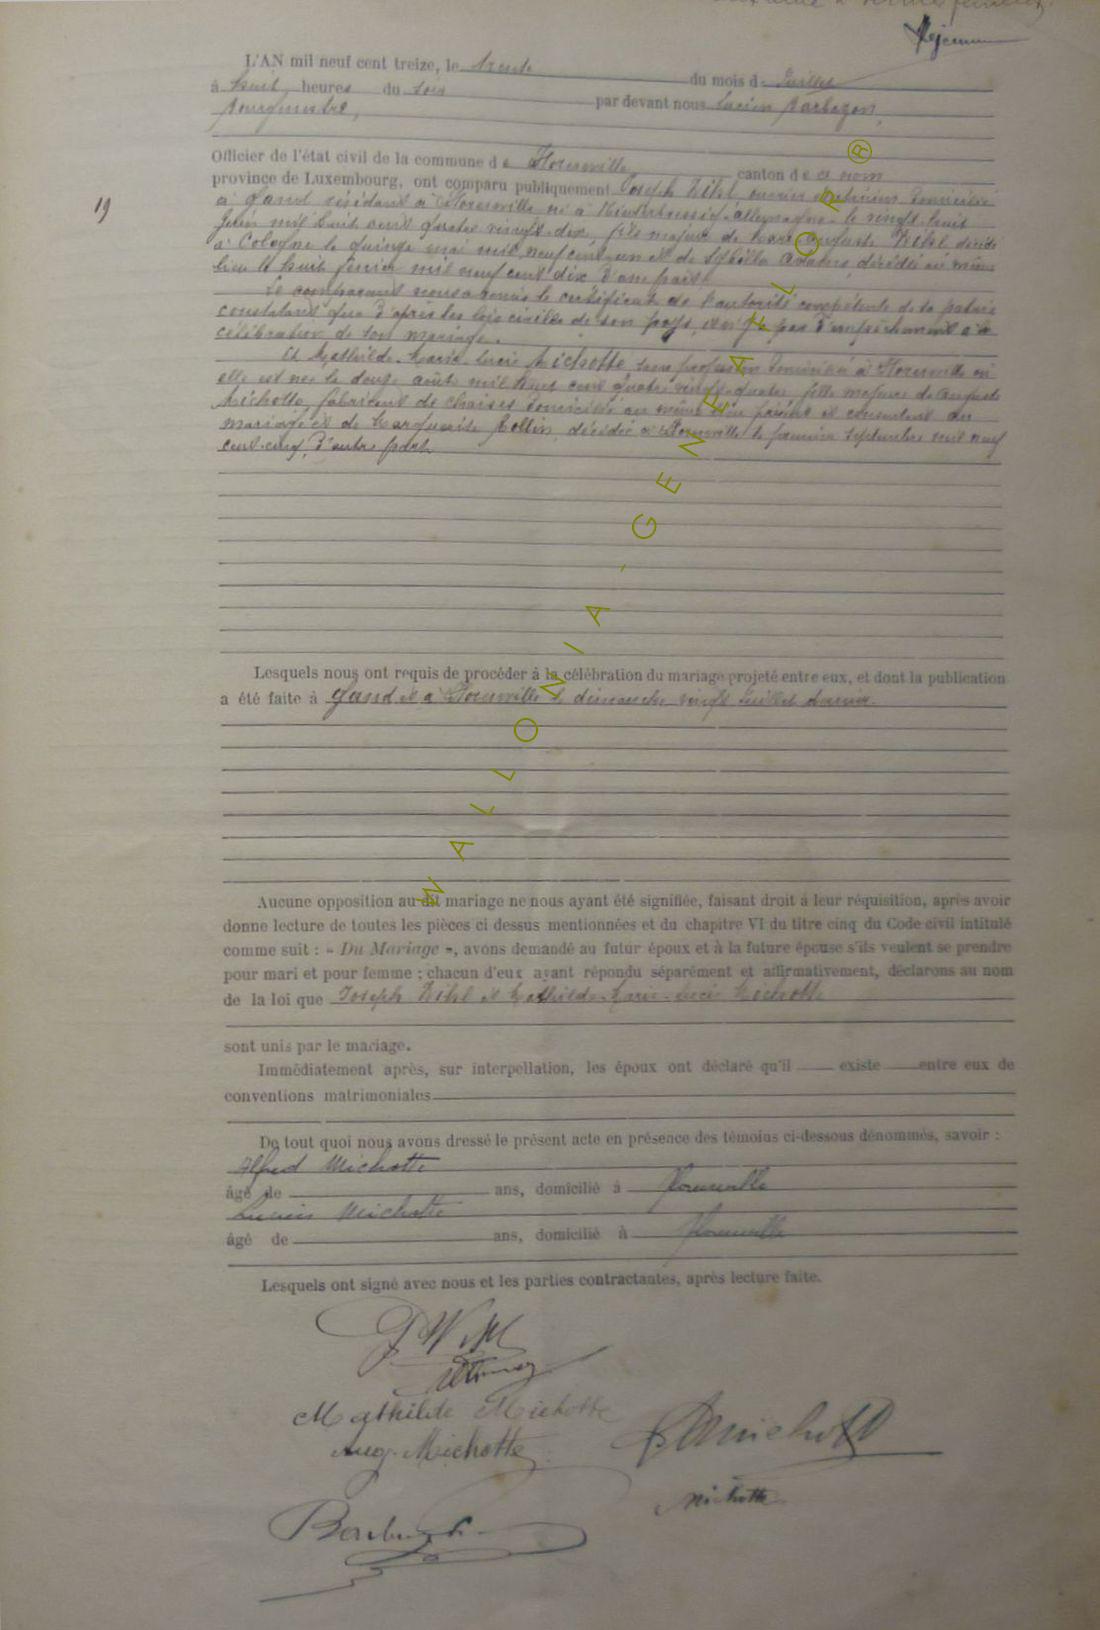 19
L'AN mil neuf cent treize, le trente du mois d Juillet
à huit heures du soir par devant nous Lucien
Bourgmestre,
Officier de l'état civil de la commune de Florenville canton de ce nom
province de Luxembourg, ont comparu publiquement Joseph ouvrier domicilié
à Gand résidant à Florenville né à Allemagne le vingt huit
Juin mil huit cent quatre vingt dix, fils majeur de Auguste décédé
à Cologne le quinze mai mil neuf cent un et de décédée au même
lieu le huit février mil neuf cent dix d'une part.
Le comparant nous a remis le certificat de l'autorité compétente de sa patrie
constatant que d'après les lois civiles de son pays, il n'y a pas d'empêchement à la
célébration de son mariage.
Et Mathilde Marie Lucie Michotte sans profession domiciliée à Florenville où
elle est née le douze août mil huit cent quatre vingt quatre, fille majeure de Auguste
Michotte, fabricant de chaises domicilié au même lieu présent et consentant au
mariage et de Marguerite décédée à Florenville le premier septembre mil neuf
cent cinq, d'autre part.
Lesquels nous ont requis de procéder à la célébration du mariage projeté entre eux, et dont la publication
a été faite à Gand et à Florenville le dimanche vingt Juillet dernier.
Aucune opposition au dit mariage ne nous ayant été signifiée, faisant droit à leur réquisition, après avoir
donne lecture de toutes les pièces ci dessus mentionnées et du chapitre VI du titre cinq du Code civil intitulé
comme suit : « Du Mariage », avons demandé au futur époux et à la future épouse s'ils veulent se prendre
pour mari et pour femme ; chacun d'eux ayant répondu séparément et affirmativement, déclarons au nom
de la loi que Joseph et Mathilde Marie Lucie Michotte
sont unis par le mariage.
Immédiatement après, sur interpellation, les époux ont déclaré qu'il existe entre eux de
conventions matrimoniales
De tout quoi nous avons dressé le présent acte en présence des témoins ci-dessous dénommés, savoir :
Alfred Michotte
âgé de ans, domicilié à Florenville
Lucien Michotte
âgé de ans, domicilié à Florenville
Lesquels ont signé avec nous et les parties contractantes, après lecture faite.
Mathilde Michotte
Aug. Michotte
Michotte
Michotte
WALLONIA-GENEAFLOR ®